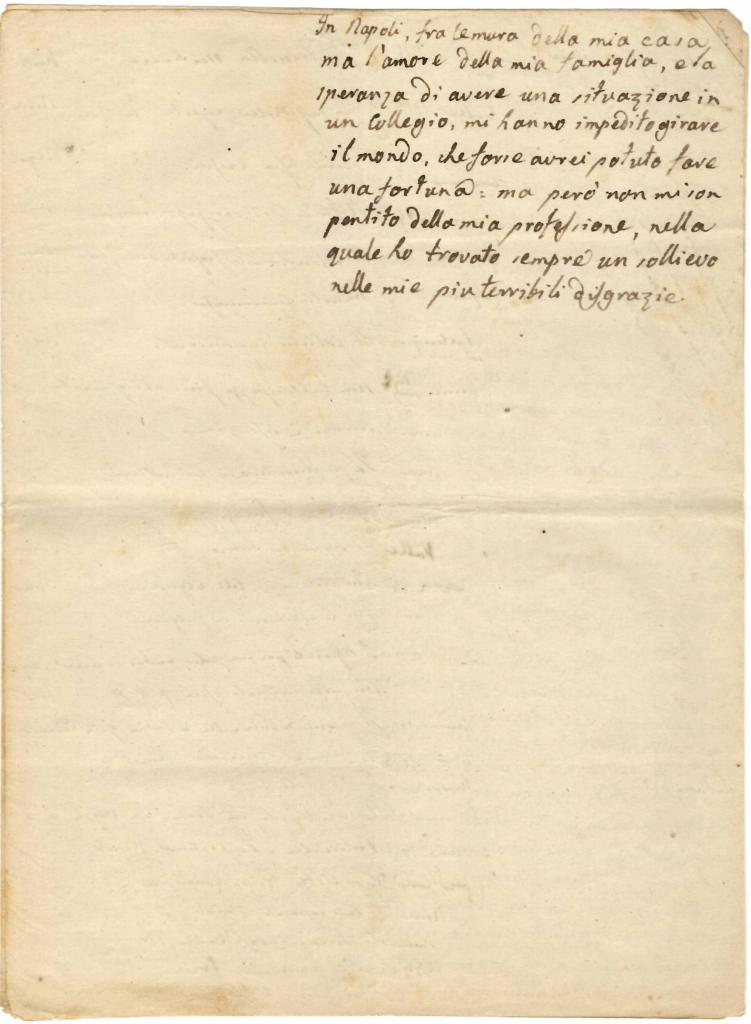 In Napoli, fra le mura della mia casa,
ma l'amore della mia famiglia, e la
speranza di avere una situazione in
un Collegio, mi hanno impedito girare
il mondo, che forse avrei potuto fare
una fortuna: ma però non mi son
pentito della mia professione, nella
quale ho trovato sempre un sollievo
nelle mie piu terribili disgrazie.